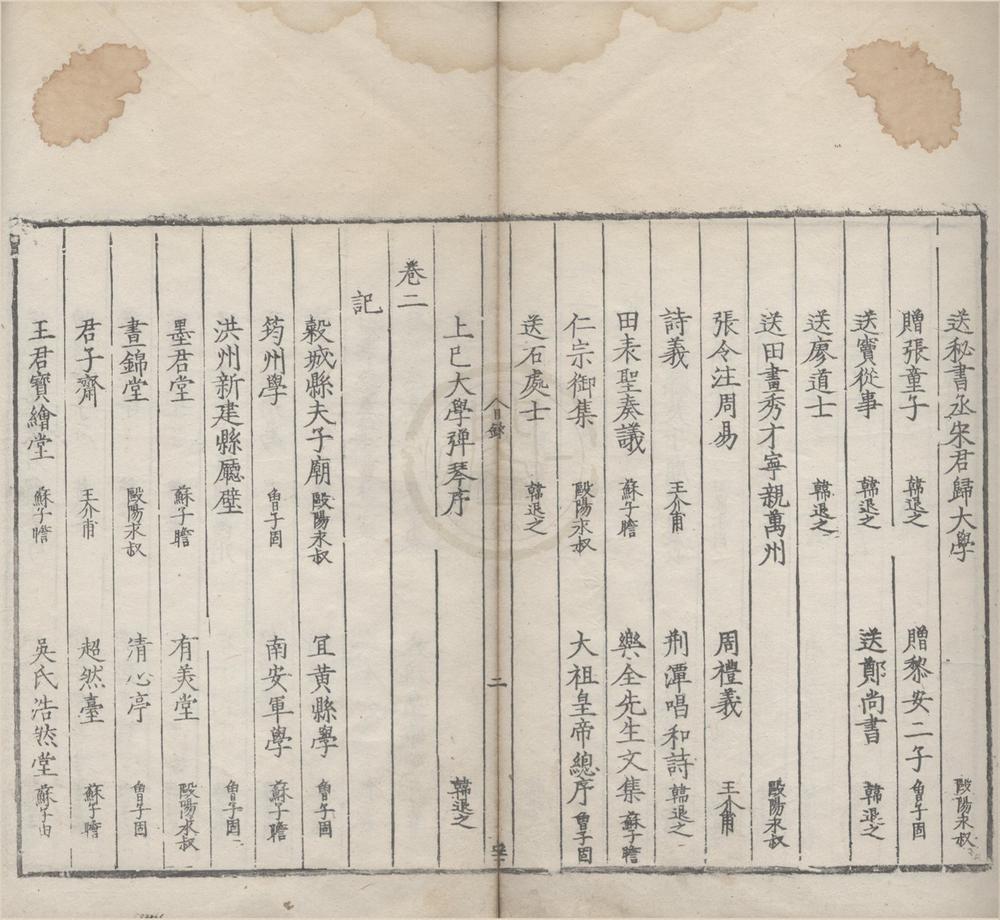 送秘書丞宋君歸大學 歐陽永叔
贈張童子 韓退之 贈黎安二子 曾子固
送竇從事 韓退之 送鄭尚書 韓退之
送廖道士 韓退之
送田畫秀才寧親萬州 歐陽永叔
張令注周易 周禮義 王介甫
詩義 王介甫 荆潭唱和詩 韓退之
田表聖奏議 蘇子瞻 樂全先生文集 蘇子瞻
仁宗御集 歐陽永叔 大祖皇帝總序 曾子固
送石處士 韓退之
目錄 二
上巳大學彈琴序 韓退之
卷二
記
穀城縣夫子廟 歐陽永叔 宜黃縣學 曾子固
筠州學 曾子固 南安軍學 蘇子瞻
洪州新建縣廳壁 曾子固
墨君堂 蘇子瞻 有美堂 歐陽永叔
晝錦堂 歐陽永叔 清心亭 曾子固
君子齋 王介甫 超然臺 蘇子瞻
王君寶繪堂 蘇子瞻 吳氏浩然堂 蘇子由